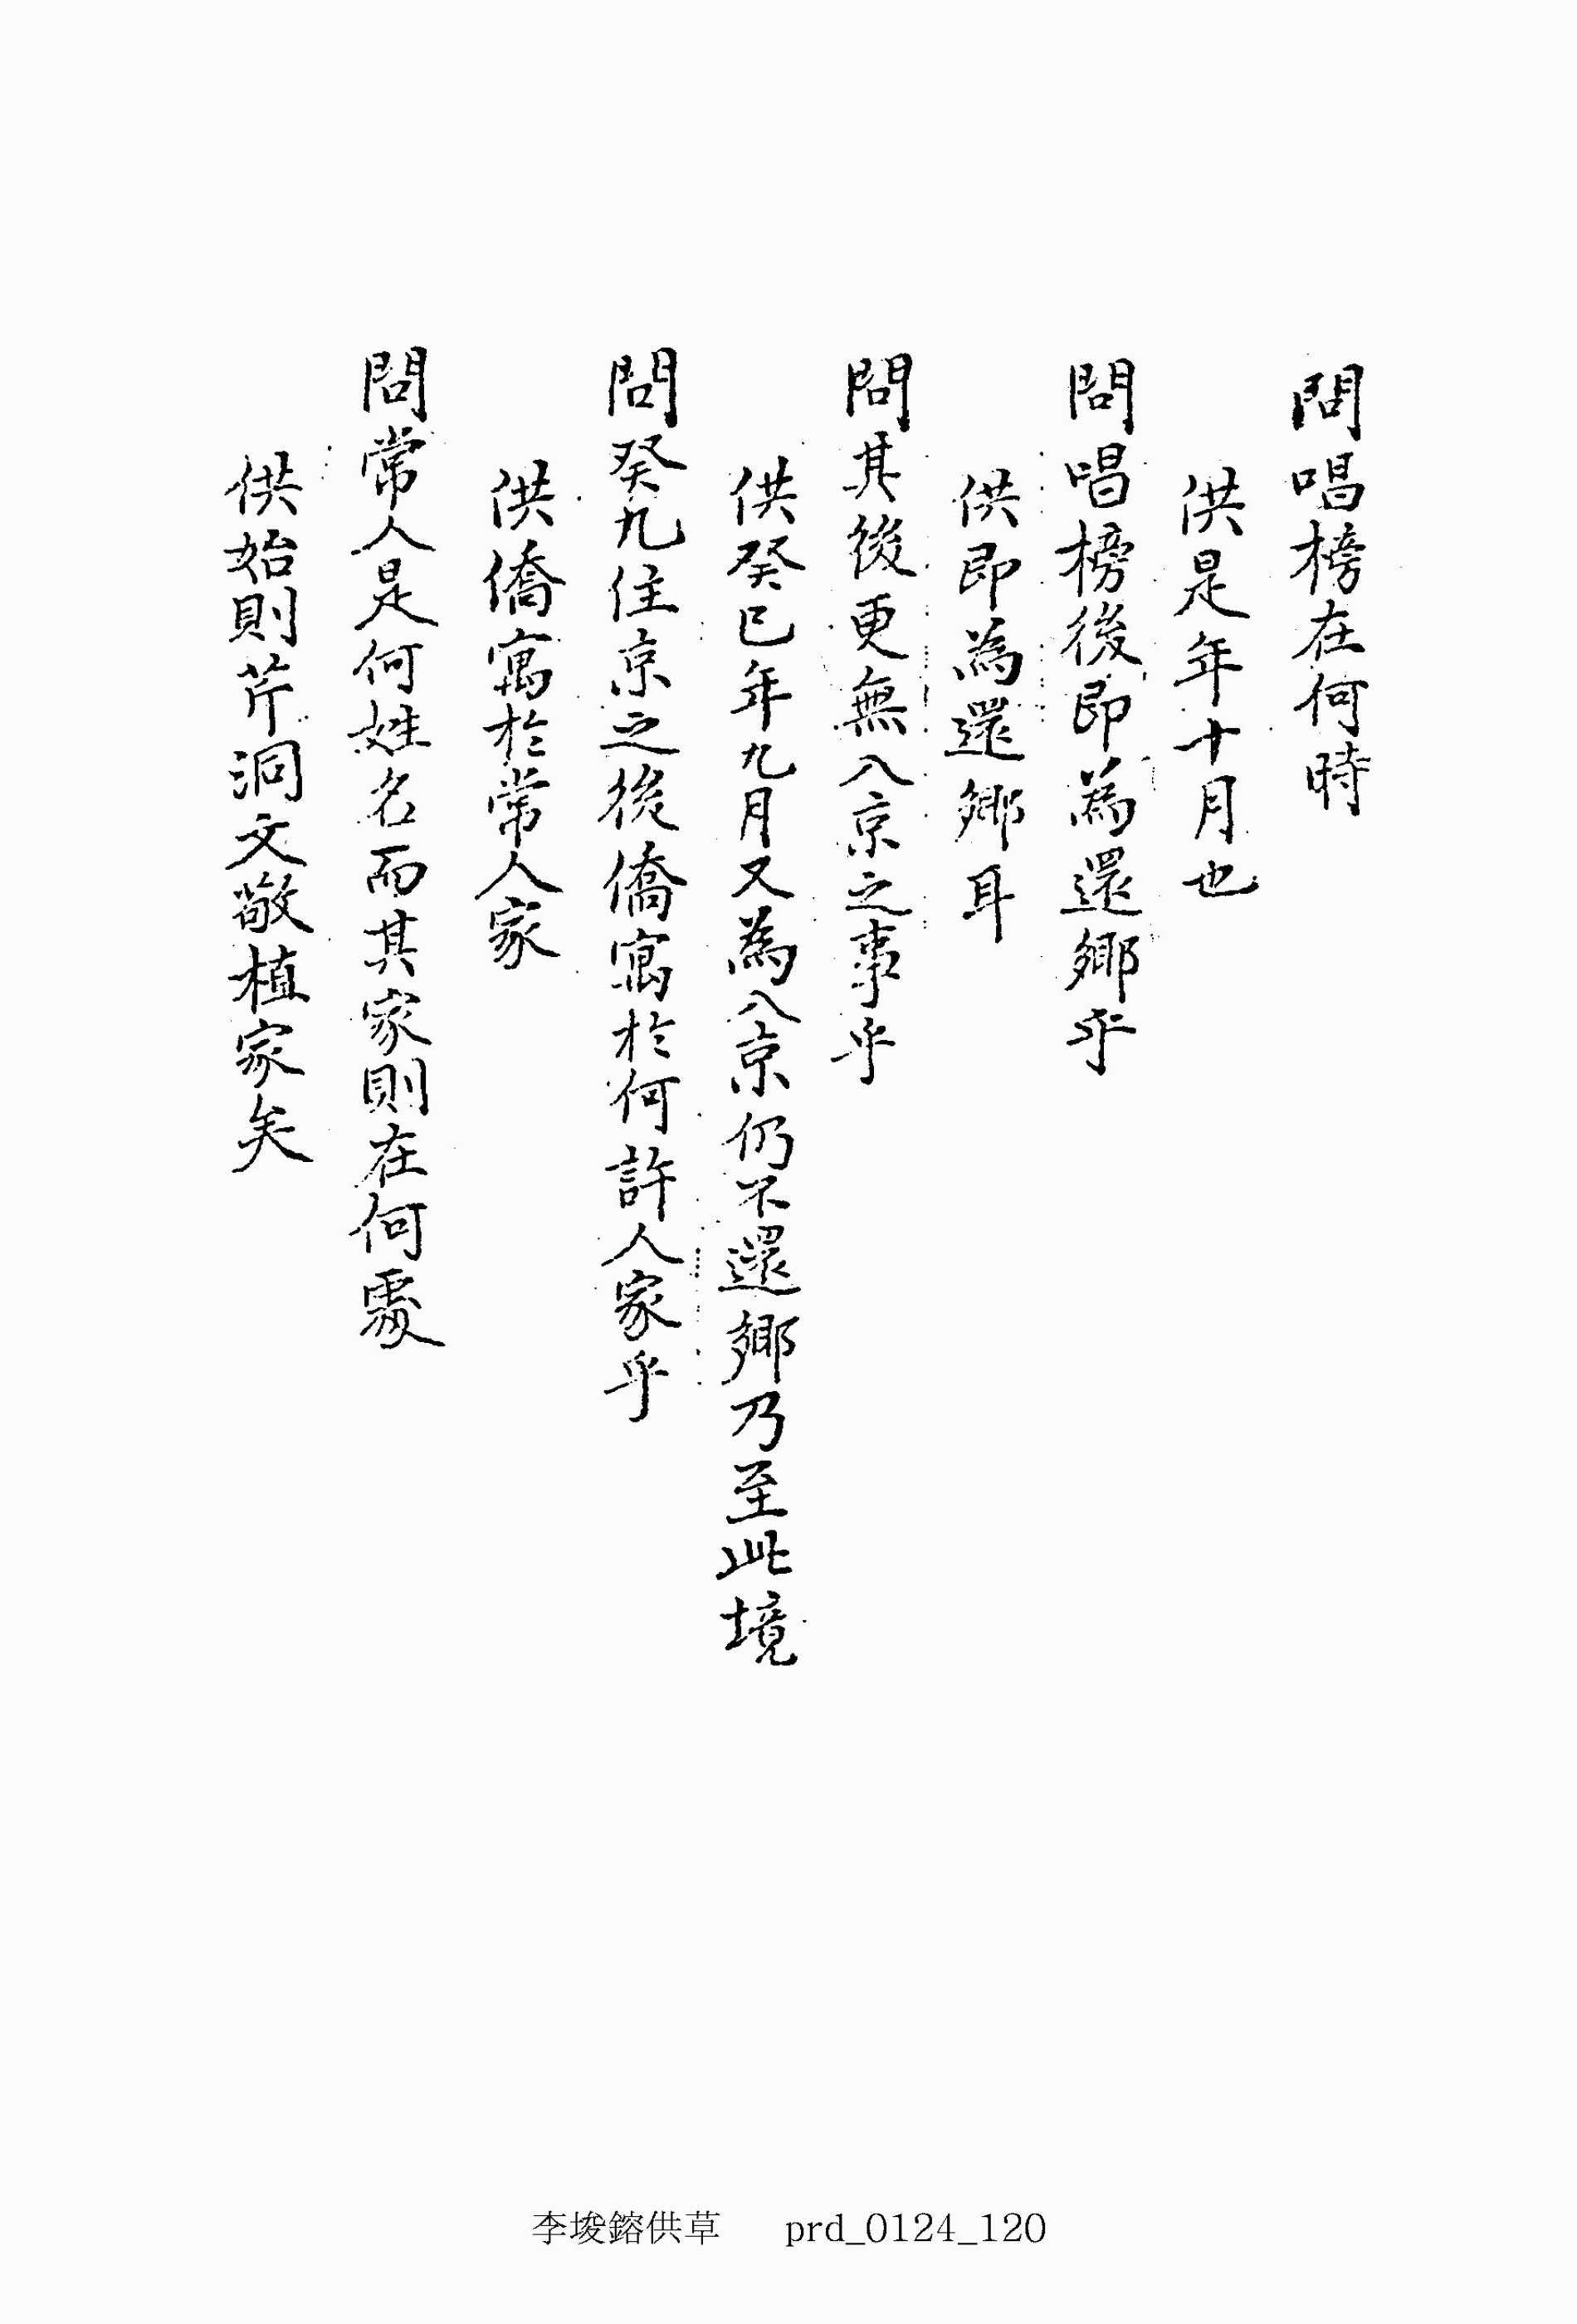 問唱榜在何時
供是年十月也
問唱榜後即為還鄉乎
供即為還鄉耳
問其後更無入京之事乎
供癸巳年九月又為入京仍不還鄉乃至此境
問癸九住京之後僑寓於何許人家乎
供僑寓於常人家
問常人是何姓名而其家則在何處
供始則芹洞文敬植家矣
李埈鎔供草 prd_0124_120